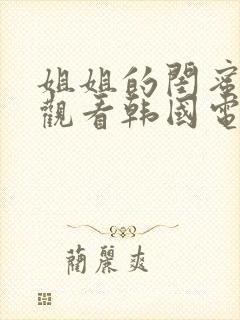 姐姐的閨蜜
觀看韩國電
蔺麗爽